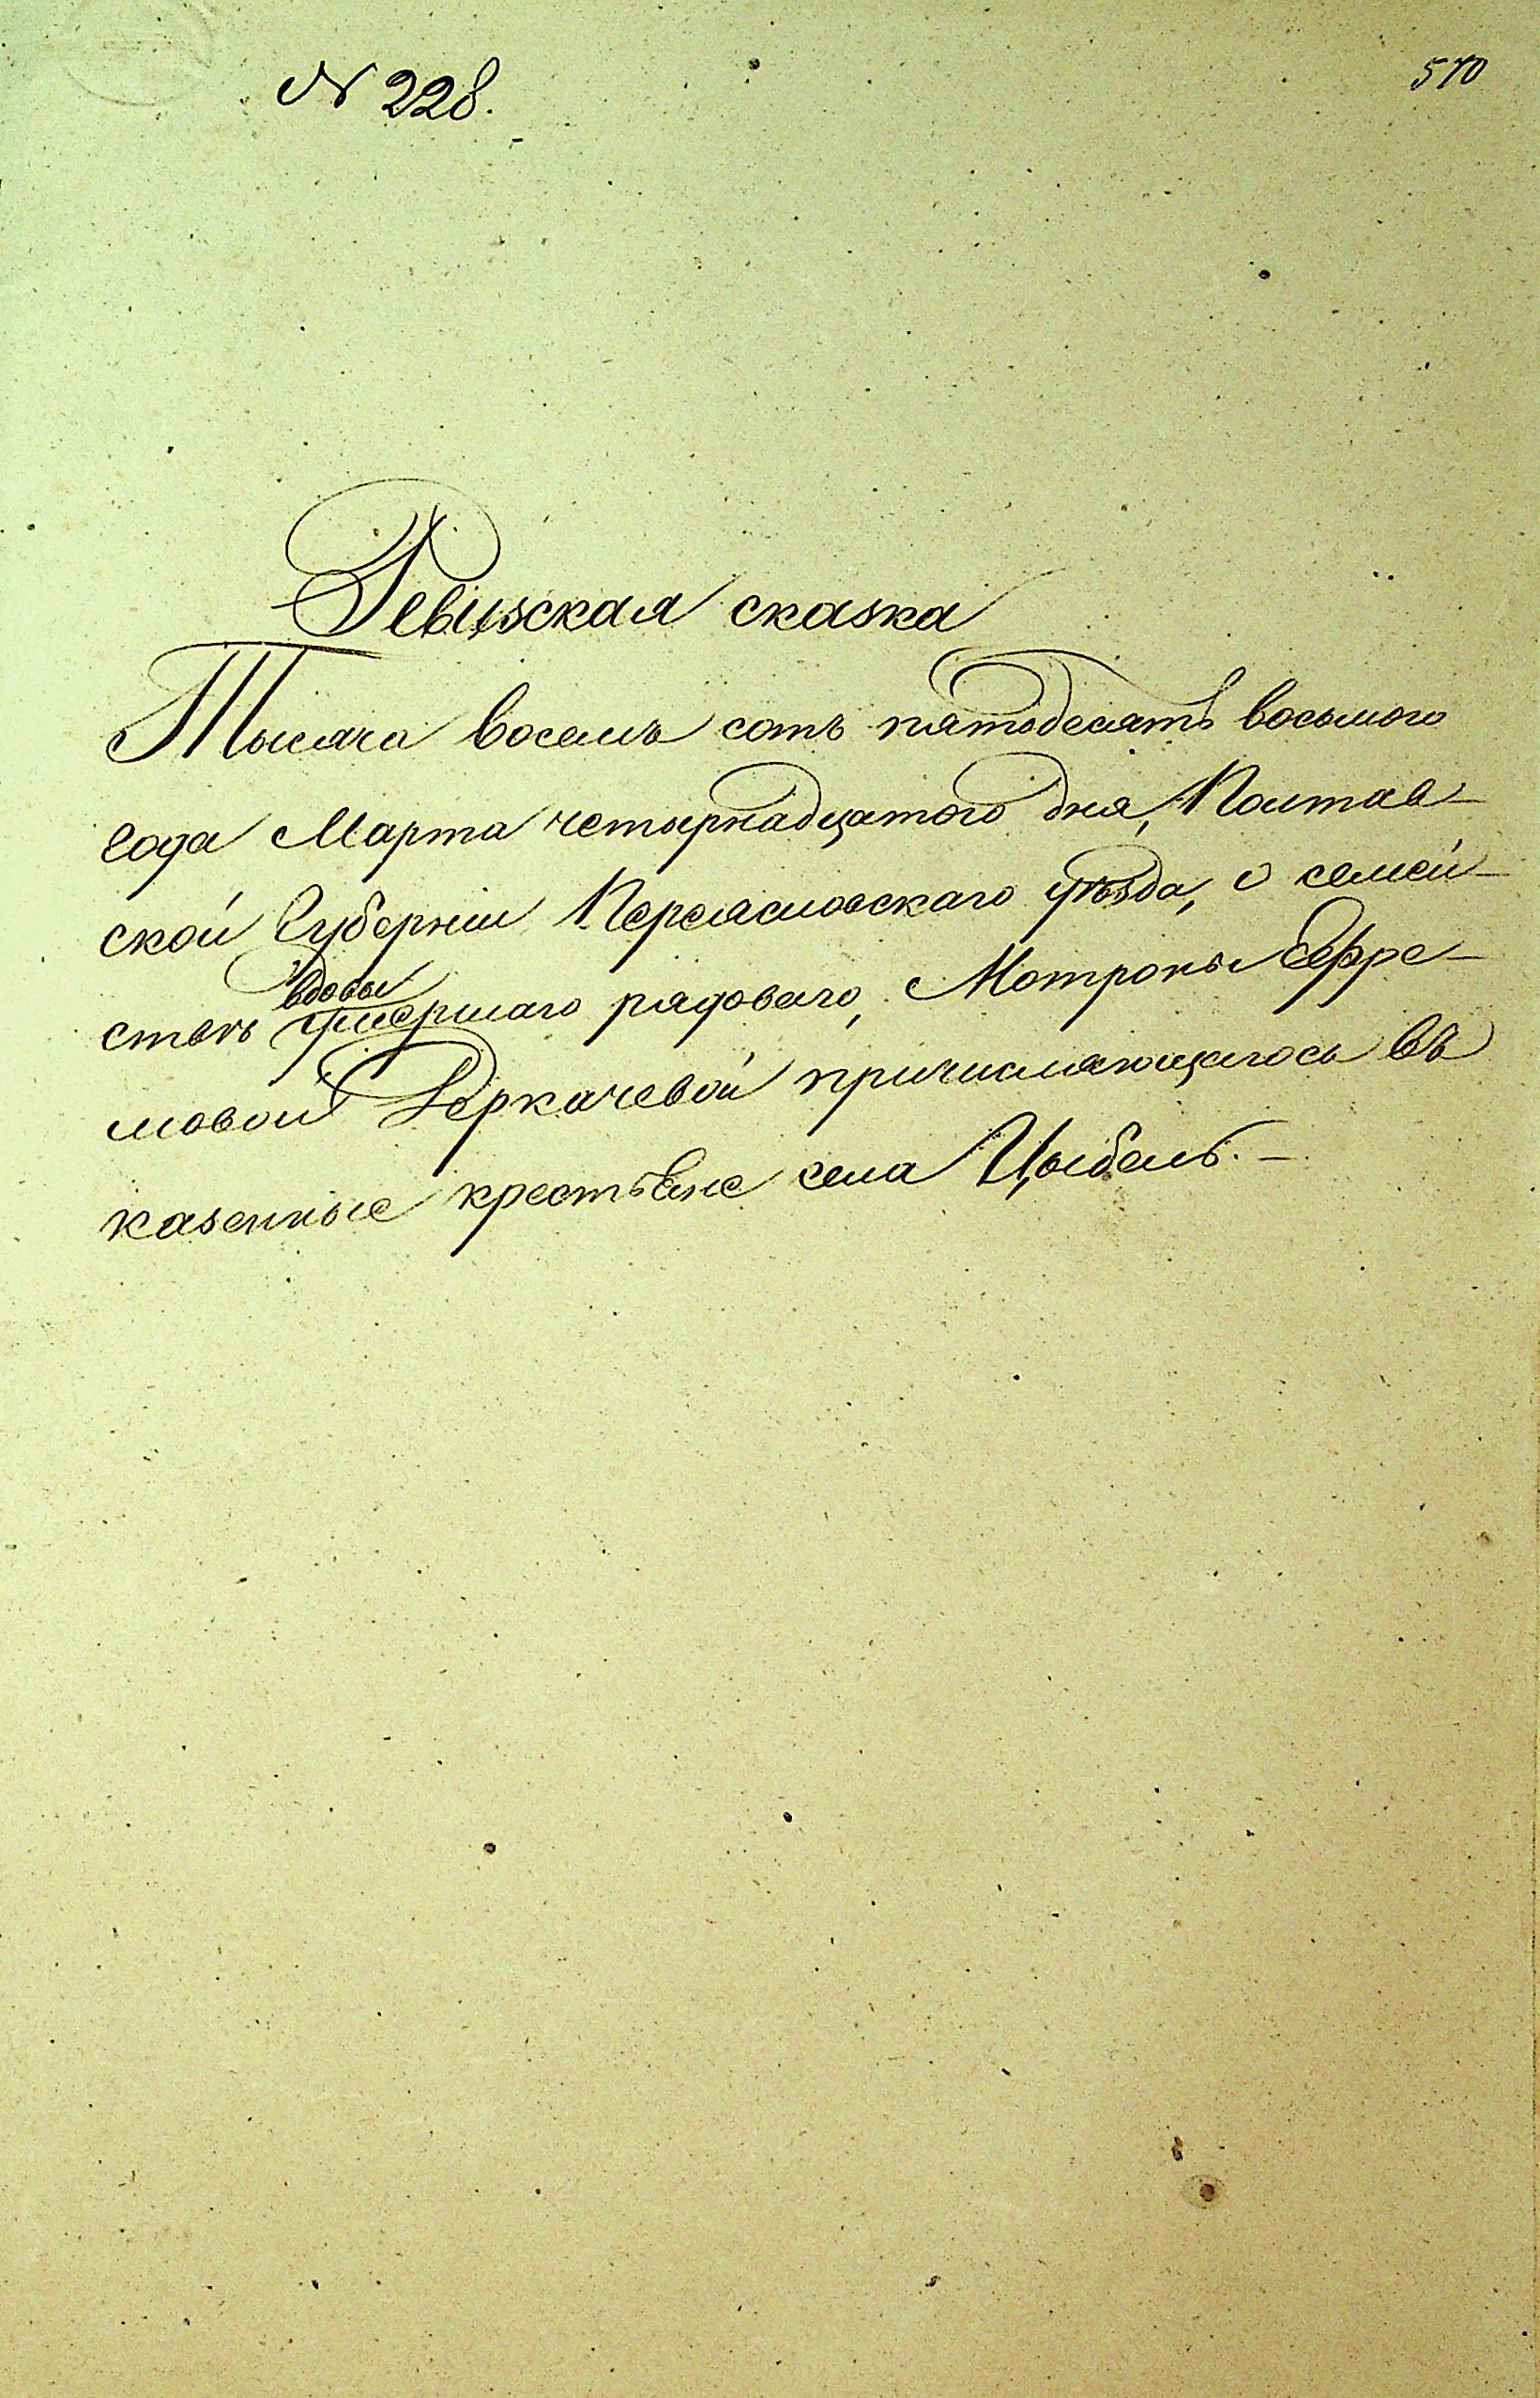 № 228.
570
Ревизская сказка
Тысяча восемь сотъ пятьдесятъ восьмого
года Марта четырнадцатого дня, Полтав-
ской Губерніи Переясловскаго уѣзда, о семей-
вдовы
ствѣ умершаго рядоваго, Мотроны Ефре-
мовой Деркачевой причисляющагось въ
казенные крестьяне села Цыбель. -